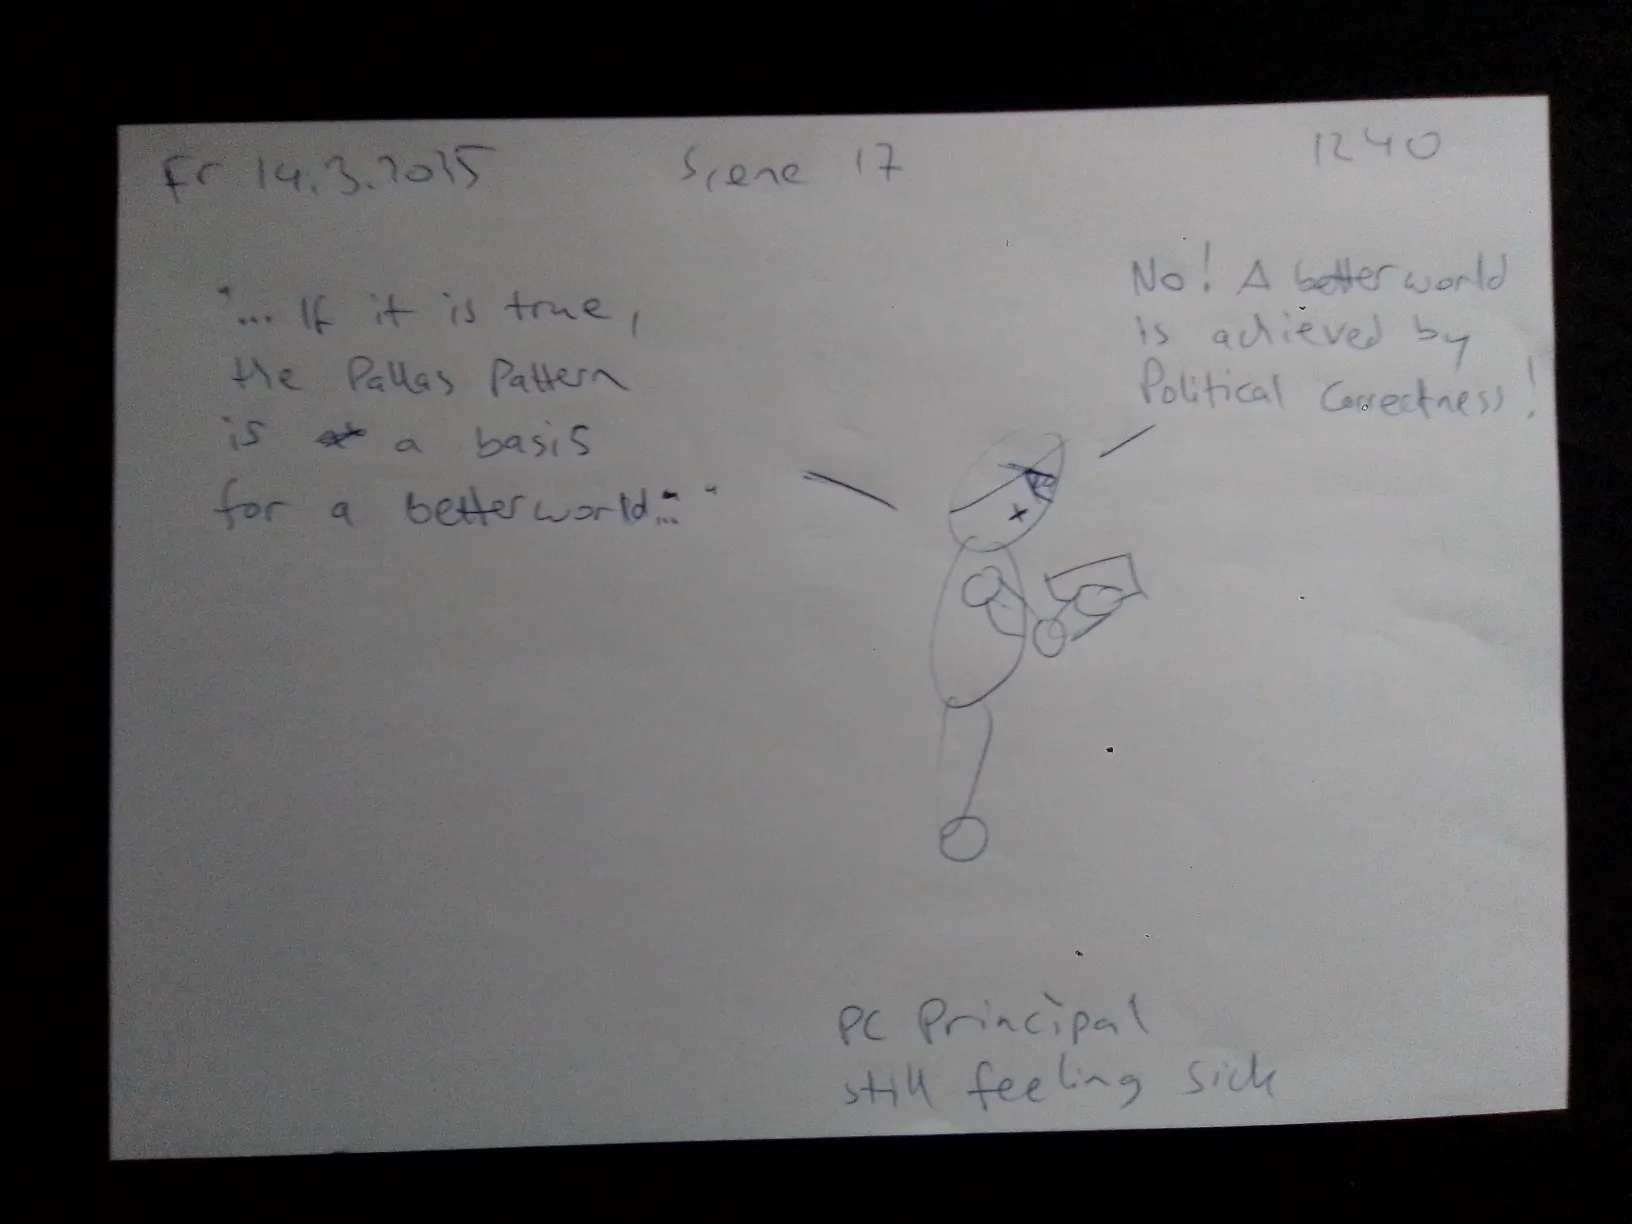 Fr 14.3.2025
Scene 17
1240
"... If it is true,
the Pallas Pattern
is a basis
for a better world..."
No! A better world
is achieved by
Political Correctness!
PC Principal
still feeling sick